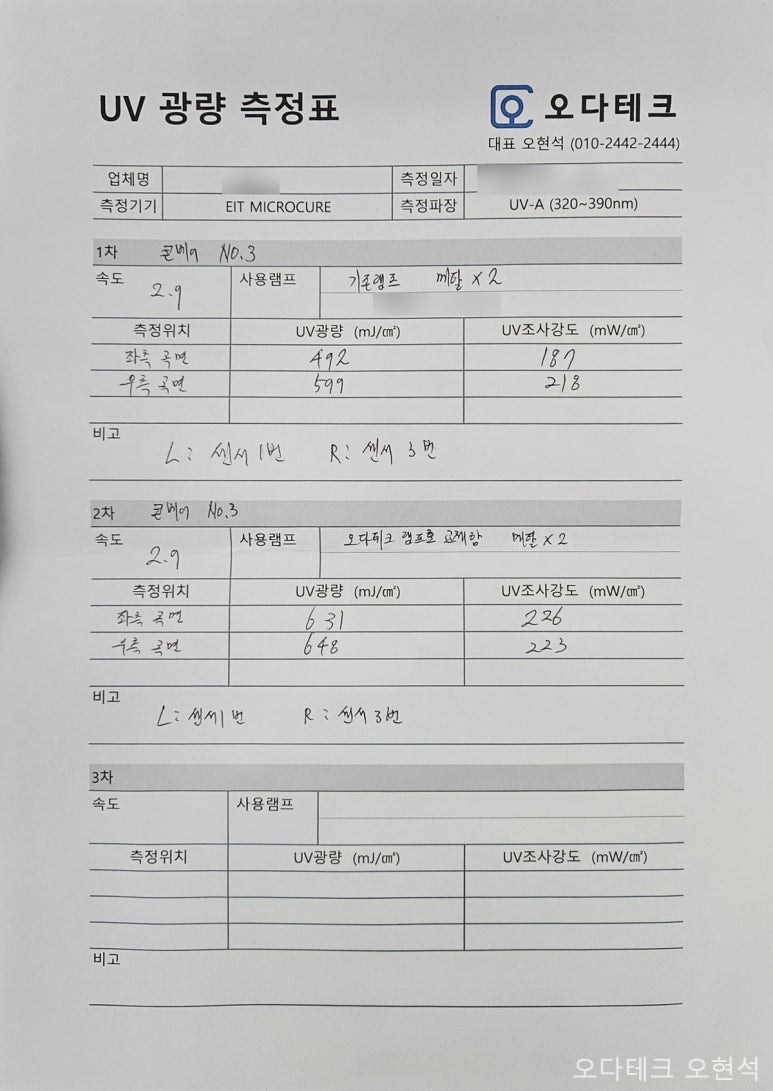 UV 광량 측정표
오다테크
대표 오현석 (010-2442-2444)
업체명 측정일자
측정기기 EIT MICROCURE 측정파장 UV-A (320~390nm)
1차 콘베어 No.3
속도 2.9 사용램프 기존램프 메탈 x 2
측정위치 UV광량 (mJ/㎠) UV조사강도 (mW/㎠)
좌측 곡면 492 187
우측 곡면 599 218
비고
L: 쎈서 1번 R: 쎈서 3번
2차 콘베어 No.3
속도 2.9 사용램프 오다테크 램프로 교체함 메탈 x 2
측정위치 UV광량 (mJ/㎠) UV조사강도 (mW/㎠)
좌측 곡면 631 226
우측 곡면 648 223
비고
L: 쎈서 1번 R: 쎈서 3번
3차
속도 사용램프
측정위치 UV광량 (mJ/㎠) UV조사강도 (mW/㎠)
비고
오다테크 오현석